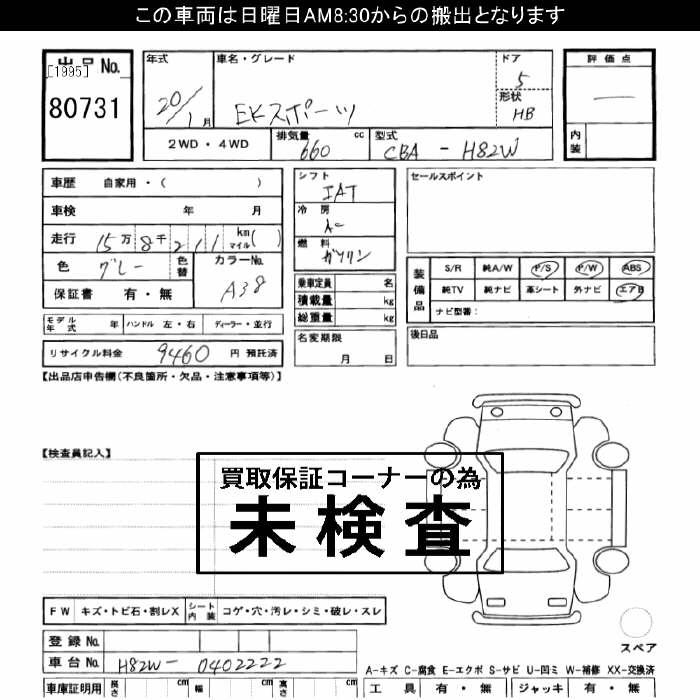 この車両は日曜日AM8:30からの搬出となります
出品No.
[1995]
80731
年式
20/1月
車名・グレード
EKスポーツ
ドア
5
形状
HB
評価点
―
内装
2WD・4WD
排気量
660 cc
型式
CBA - H82W
車歴 自家用・( )
車検 年 月
走行 15万8千211 km マイル( )
色 グレー 色替
カラーNo.
A38
保証書 有・無
シフト
IAT
冷房
燃料
ガソリン
乗車定員 名
積載量 kg
総重量 kg
セールスポイント
装備品
S/R 純A/W P/S P/W ABS
純TV 純ナビ 革シート 外ナビ エアB
ナビ型番:
モデル年式 年 ハンドル 左・右 ディーラー・並行
リサイクル料金 9460 円 預託済
名変期限
月 日
後日品
【出品店申告欄(不良箇所・欠品・注意事項等)】
【検査員記入】
買取保証コーナーの為
未検査
FW キズ・トビ石・割レX シート内装 コゲ・穴・汚レ・シミ・破レ・スレ
登録No.
車台No. H82W- 0402222
スペア
A-キズ C-腐食 E-エクボ S-サビ U-凹ミ W-補修 XX-交換済
車庫証明用 長さ cm 幅 cm 高さ cm
工具 有・無 ジャッキ 有・無